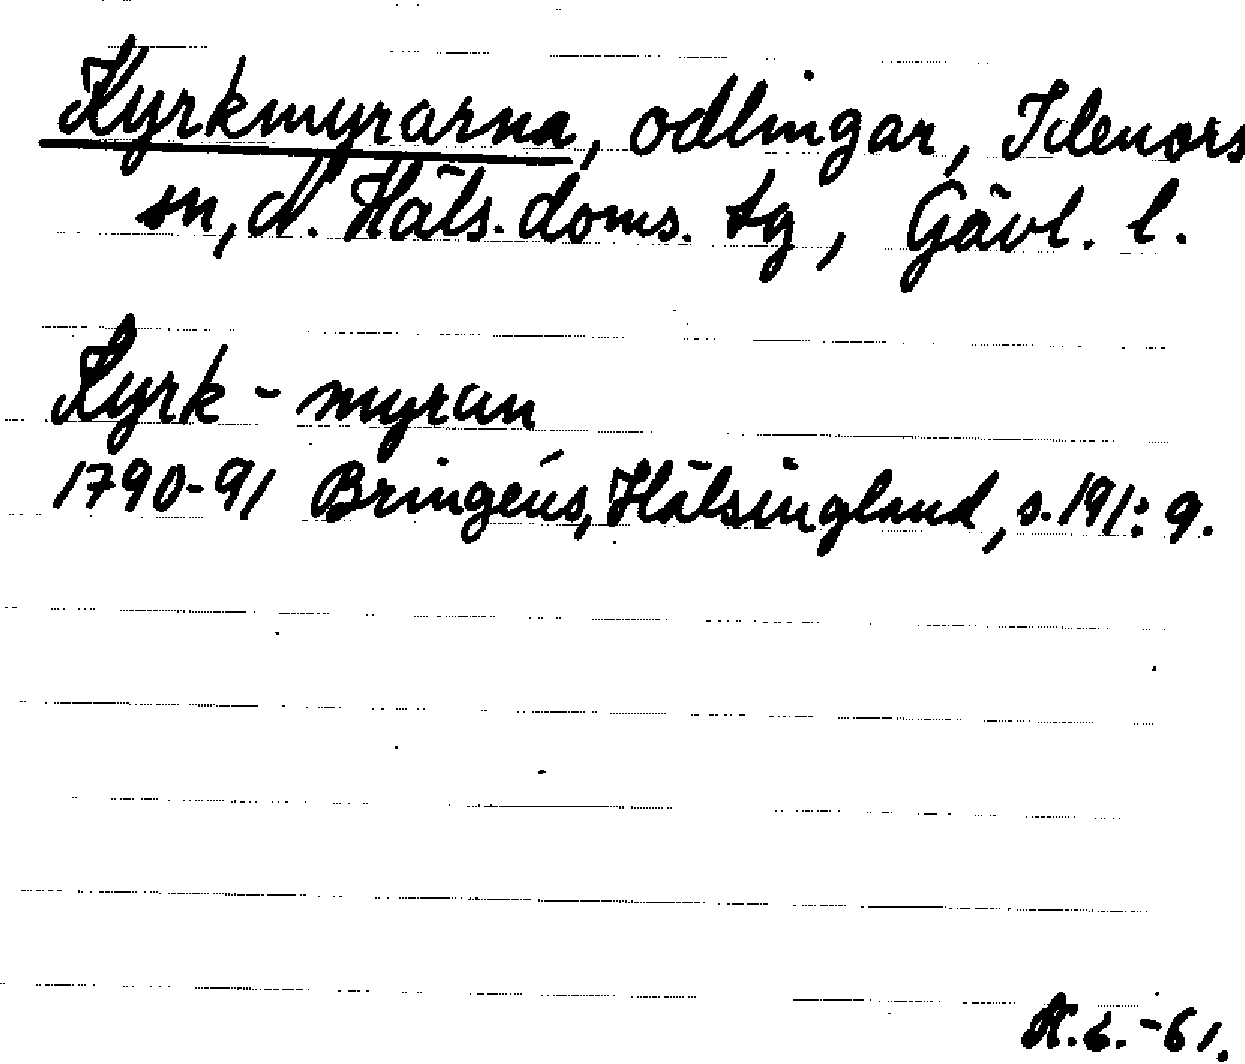 Kyrkmyrarna, odlingar, Idenors
sn, N. Häls. doms. tg, Gävl. l.
Kyrk - myran
1790-91 Bringéus, Hälsingland, s. 191: 9.
-61.